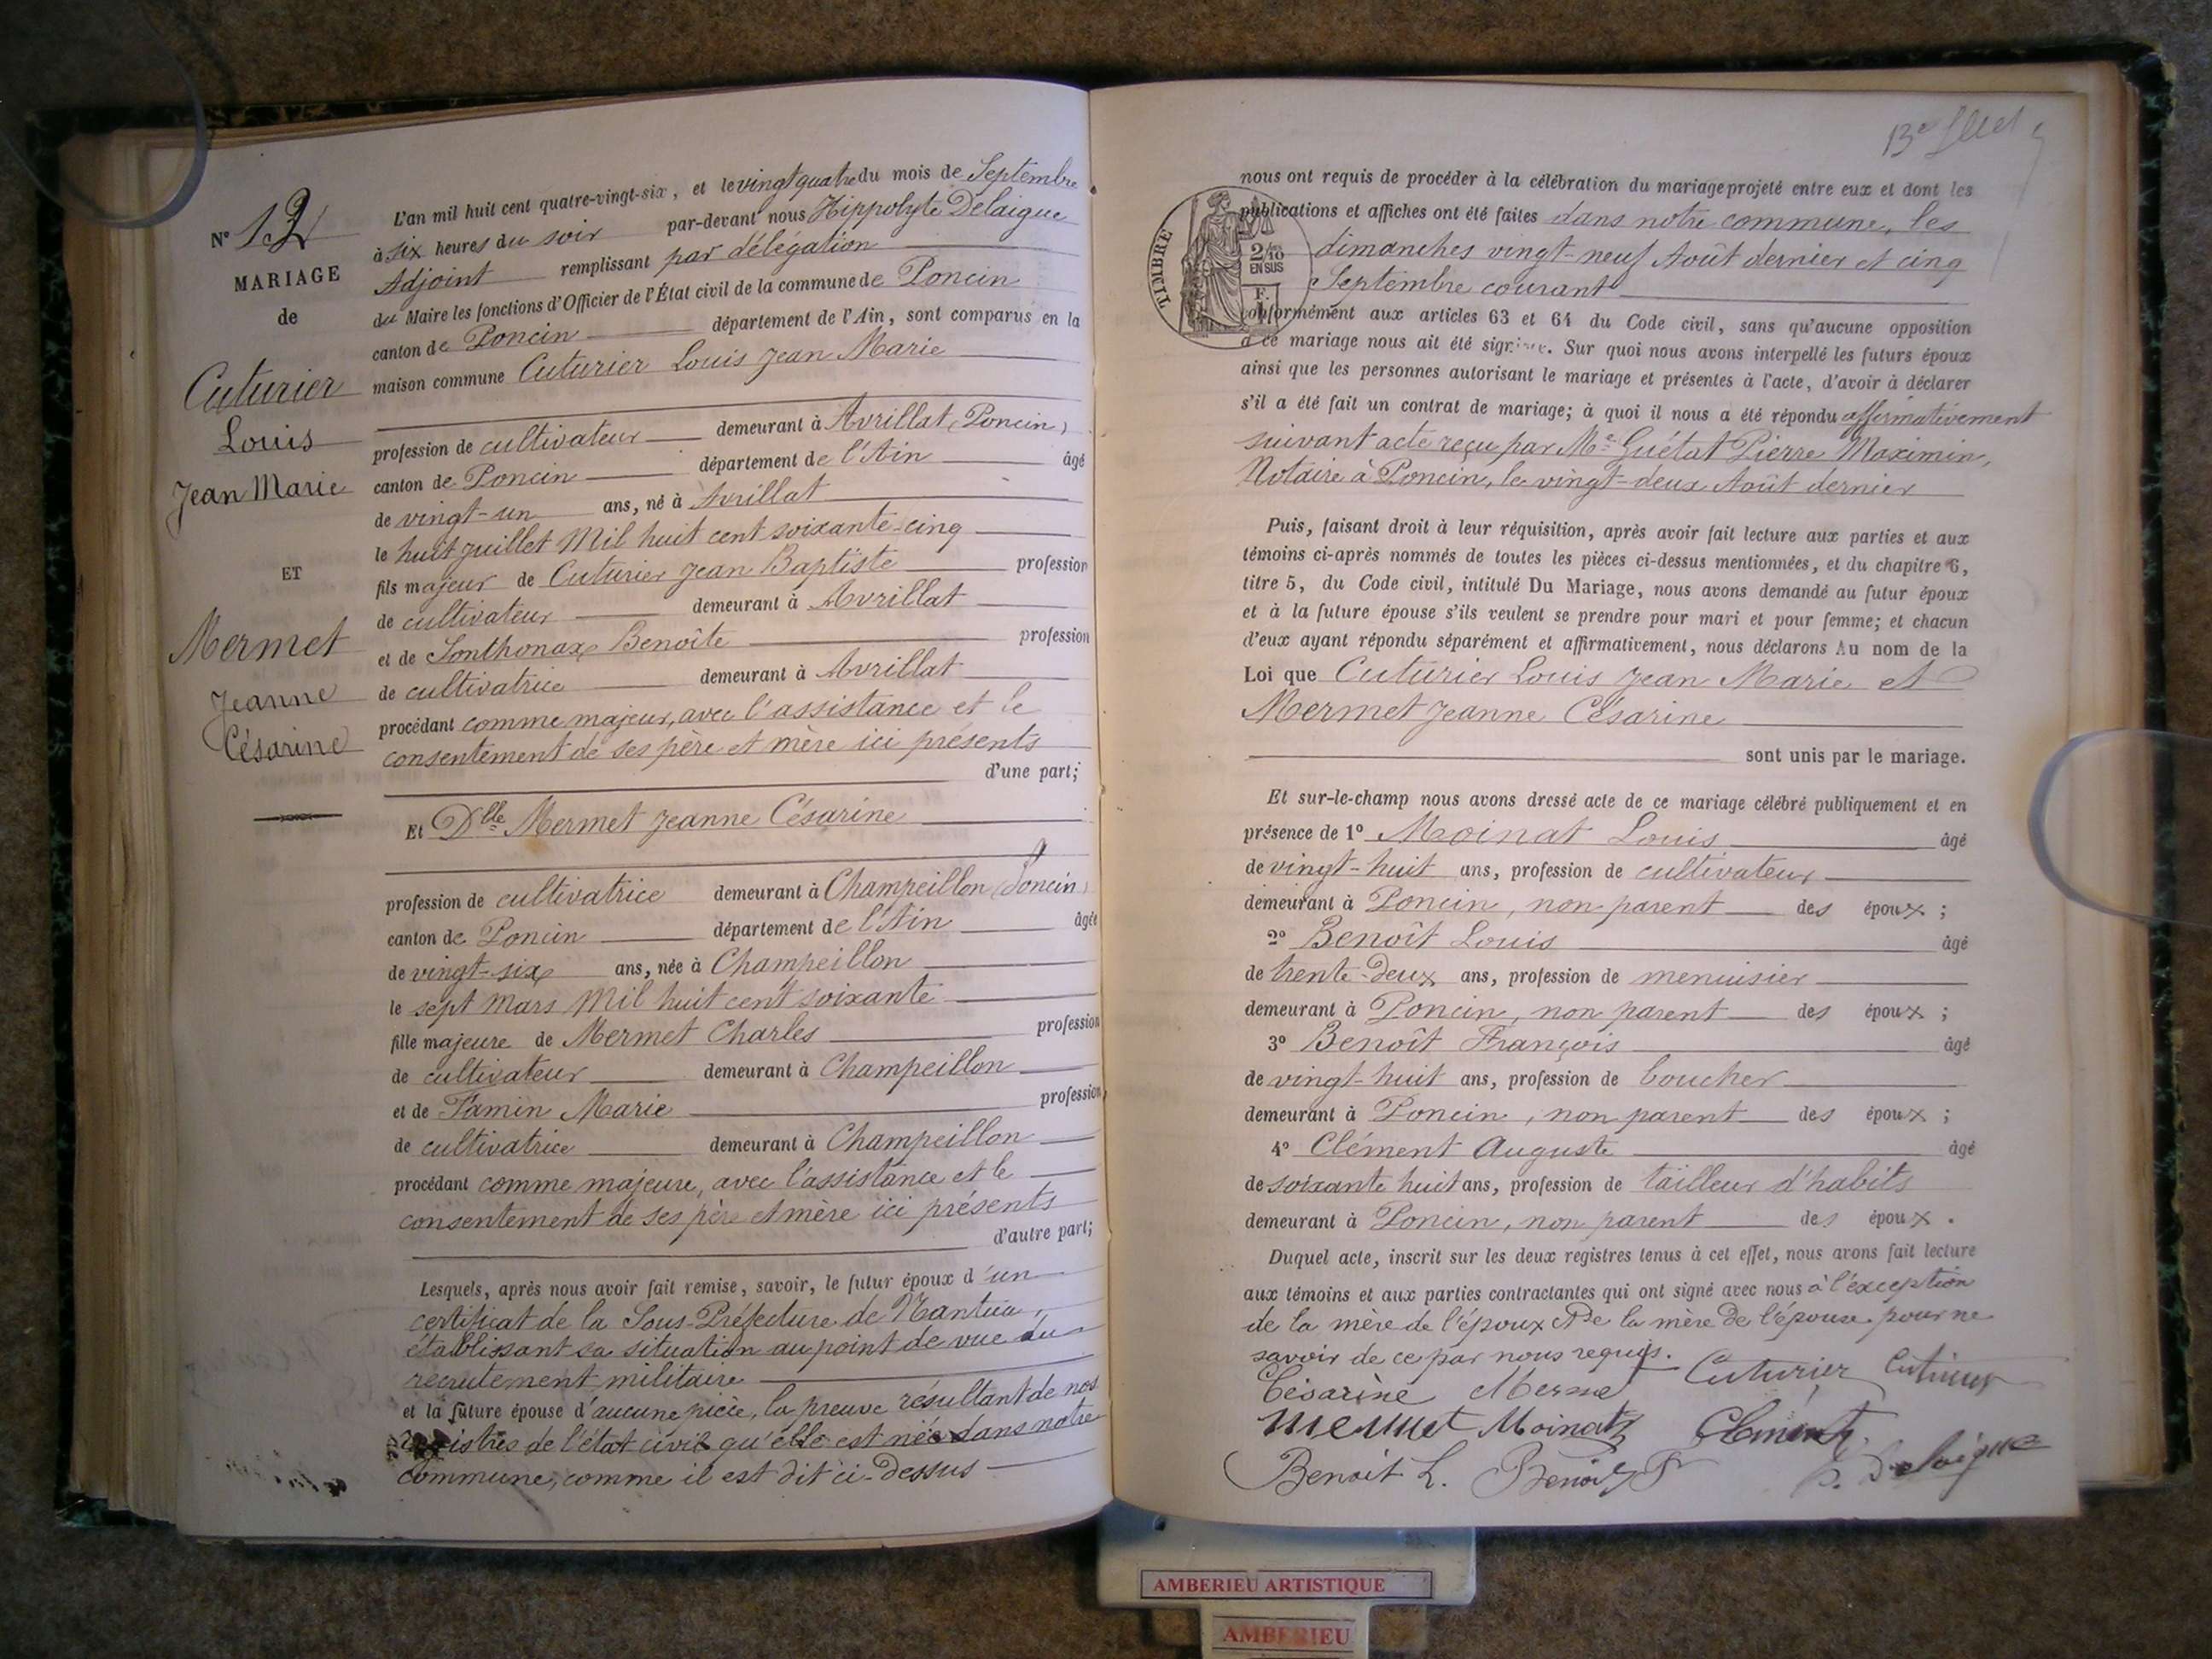 N° 12
MARIAGE
de
Cuturier
Louis
Jean Marie
ET
Mermet
Jeanne
Césarine
L'an mil huit cent quatre-vingt-six, et le vingt quatre du mois de Septembre
à six heures du soir par-devant nous Hippolyte Delaigue
Adjoint remplissant par délégation
du Maire les fonctions d'Officier de l'État civil de la commune de Poncin
canton de Poncin département de l'Ain, sont comparus en la
maison commune Cuturier Louis Jean Marie
profession de cultivateur demeurant à Avrillat (Poncin)
canton de Poncin département de l'Ain âgé
de vingt-un ans, né à Avrillat
le huit juillet Mil huit cent soixante-cinq
fils majeur de Cuturier Jean Baptiste profession
de cultivateur demeurant à Avrillat
et de Sonthonax Benoîte profession
de cultivatrice demeurant à Avrillat
procédant comme majeur, avec l'assistance et le
consentement de ses père et mère ici présents
d'une part;
Et Dlle Mermet Jeanne Césarine
profession de cultivatrice demeurant à Champeillon (Poncin)
canton de Poncin département de l'Ain âgée
de vingt-six ans, née à Champeillon
le sept mars Mil huit cent soixante
fille majeure de Mermet Charles profession
de cultivateur demeurant à Champeillon
et de Famin Marie profession
de cultivatrice demeurant à Champeillon
procédant comme majeure, avec l'assistance et le
consentement de ses père et mère ici présents
d'autre part;
Lesquels, après nous avoir fait remise, savoir, le futur époux d'un
certificat de la Sous-Préfecture de Nantua,
établissant sa situation au point de vue du
recrutement militaire
et la future épouse d'aucune pièce, la preuve résultant de nos
registres de l'état civil qu'elle est née dans notre
commune, comme il est dit ci-dessus
13e
nous ont requis de procéder à la célébration du mariage projeté entre eux et dont les
publications et affiches ont été faites dans notre commune, les
dimanches vingt-neuf Août dernier et cinq
Septembre courant
TIMBRE
2/10
EN SUS
F.
conformément aux articles 63 et 64 du Code civil, sans qu'aucune opposition
à ce mariage nous ait été signifiée. Sur quoi nous avons interpellé les futurs époux
ainsi que les personnes autorisant le mariage et présentes à l'acte, d'avoir à déclarer
s'il a été fait un contrat de mariage; à quoi il nous a été répondu affirmativement
suivant acte reçu par Me Guétat Pierre Maximin,
Notaire à Poncin, le vingt-deux Août dernier
Puis, faisant droit à leur réquisition, après avoir fait lecture aux parties et aux
témoins ci-après nommés de toutes les pièces ci-dessus mentionnées, et du chapitre 6,
titre 5, du Code civil, intitulé Du Mariage, nous avons demandé au futur époux
et à la future épouse s'ils veulent se prendre pour mari et pour femme; et chacun
d'eux ayant répondu séparément et affirmativement, nous déclarons Au nom de la
Loi que Cuturier Louis Jean Marie et
Mermet Jeanne Césarine
sont unis par le mariage.
Et sur-le-champ nous avons dressé acte de ce mariage célébré publiquement et en
présence de 1° Moinat Louis âgé
de vingt-huit ans, profession de cultivateur
demeurant à Poncin, non parent des époux;
2° Benoît Louis âgé
de trente-deux ans, profession de menuisier
demeurant à Poncin, non parent des époux;
3° Benoît François âgé
de vingt-huit ans, profession de boucher
demeurant à Poncin, non parent des époux;
4° Clément Auguste âgé
de soixante huit ans, profession de tailleur d'habits
demeurant à Poncin, non parent des époux.
Duquel acte, inscrit sur les deux registres tenus à cet effet, nous avons fait lecture
aux témoins et aux parties contractantes qui ont signé avec nous à l'exception
de la mère de l'époux & de la mère de l'épouse pour ne
savoir de ce par nous requis. Cuturier Cuturier
Césarine Mermet
Mermet Moinat Clément
Benoit L. Benoit F. Delaigue
AMBERIEU ARTISTIQUE
AMBERIEU